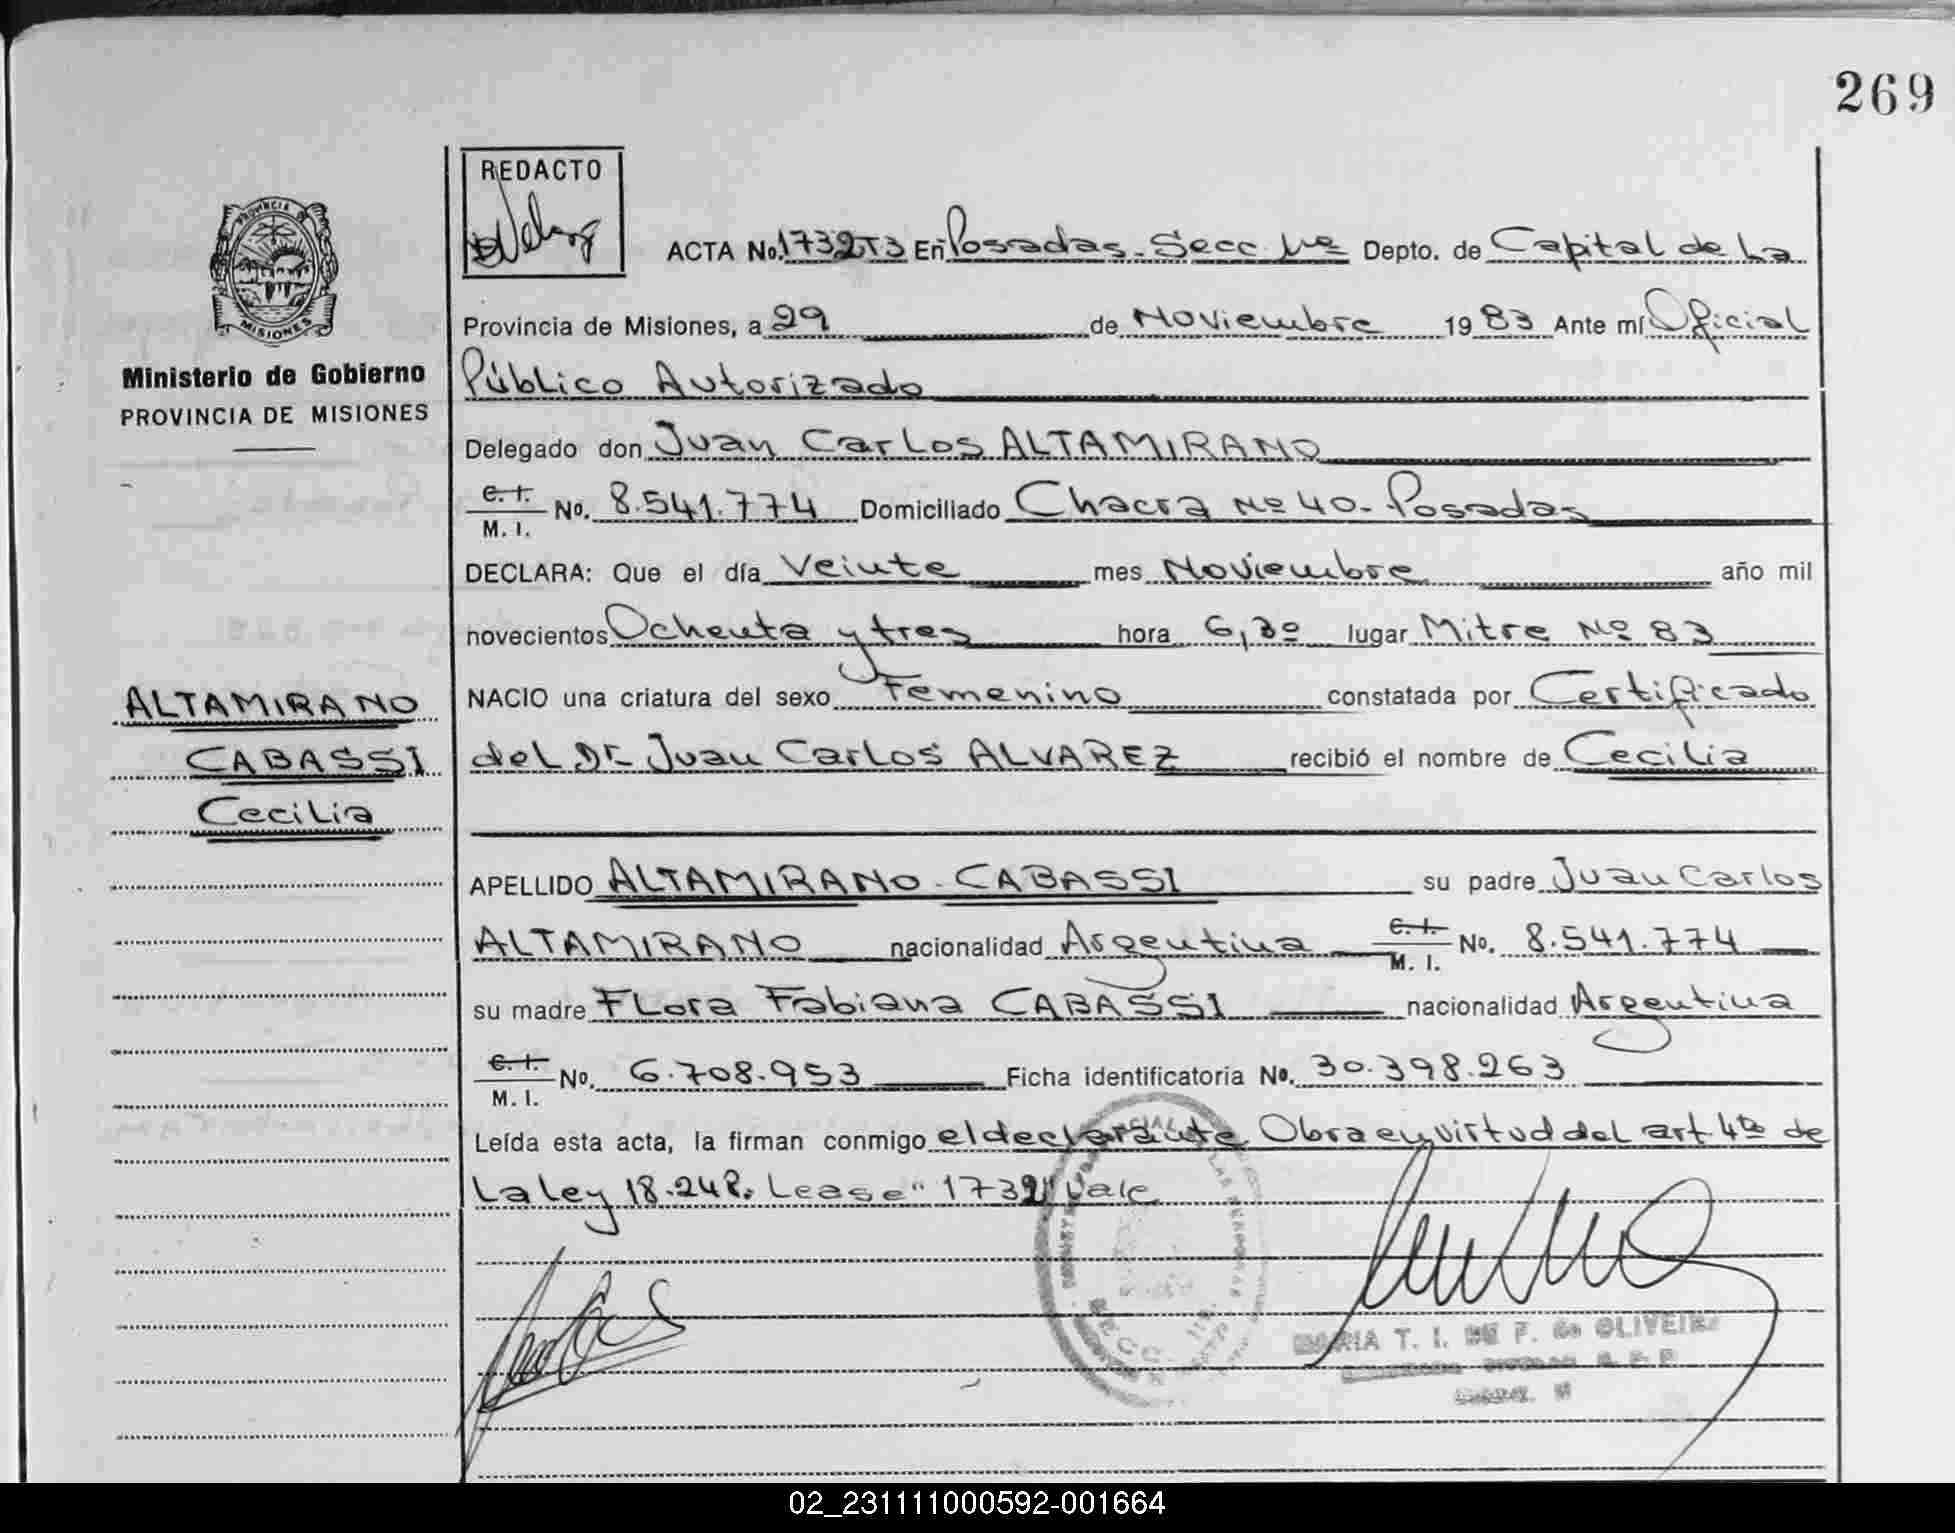 269
REDACTO
PROVINCIA DE
MISIONES
Ministerio de Gobierno
PROVINCIA DE MISIONES
ACTA No. 1732T3 En Posadas. Secc. 1ra Depto. de Capital de La
Provincia de Misiones, a 29 de Noviembre 1983 Ante mí Oficial
Público Autorizado
Delegado don Juan Carlos ALTAMIRANO
C. I. M. I. No. 8.541.774 Domiciliado Chacra Nº 40- Posadas
DECLARA: Que el día Veinte mes Noviembre año mil
novecientos Ochenta y tres hora 6,30 lugar Mitre Nº 83
NACIO una criatura del sexo Femenino constatada por Certificado
del Dr. Juan Carlos ALVAREZ recibió el nombre de Cecilia
ALTAMIRANO
CABASSI
Cecilia
APELLIDO ALTAMIRANO CABASSI su padre Juan Carlos
ALTAMIRANO nacionalidad Argentina C. I. M. I. No. 8.541.774
su madre FLora Fabiana CABASSI nacionalidad Argentina
C. I. M. I. No. 6.708.953 Ficha identificatoria No. 30.398.263
Leída esta acta, la firman conmigo el declarante Obra en virtud del art. 4to de
La Ley 18.248. Lease "1732" Vale
MARIA T. I. DE F. de OLIVEIRA
02_231111000592-001664